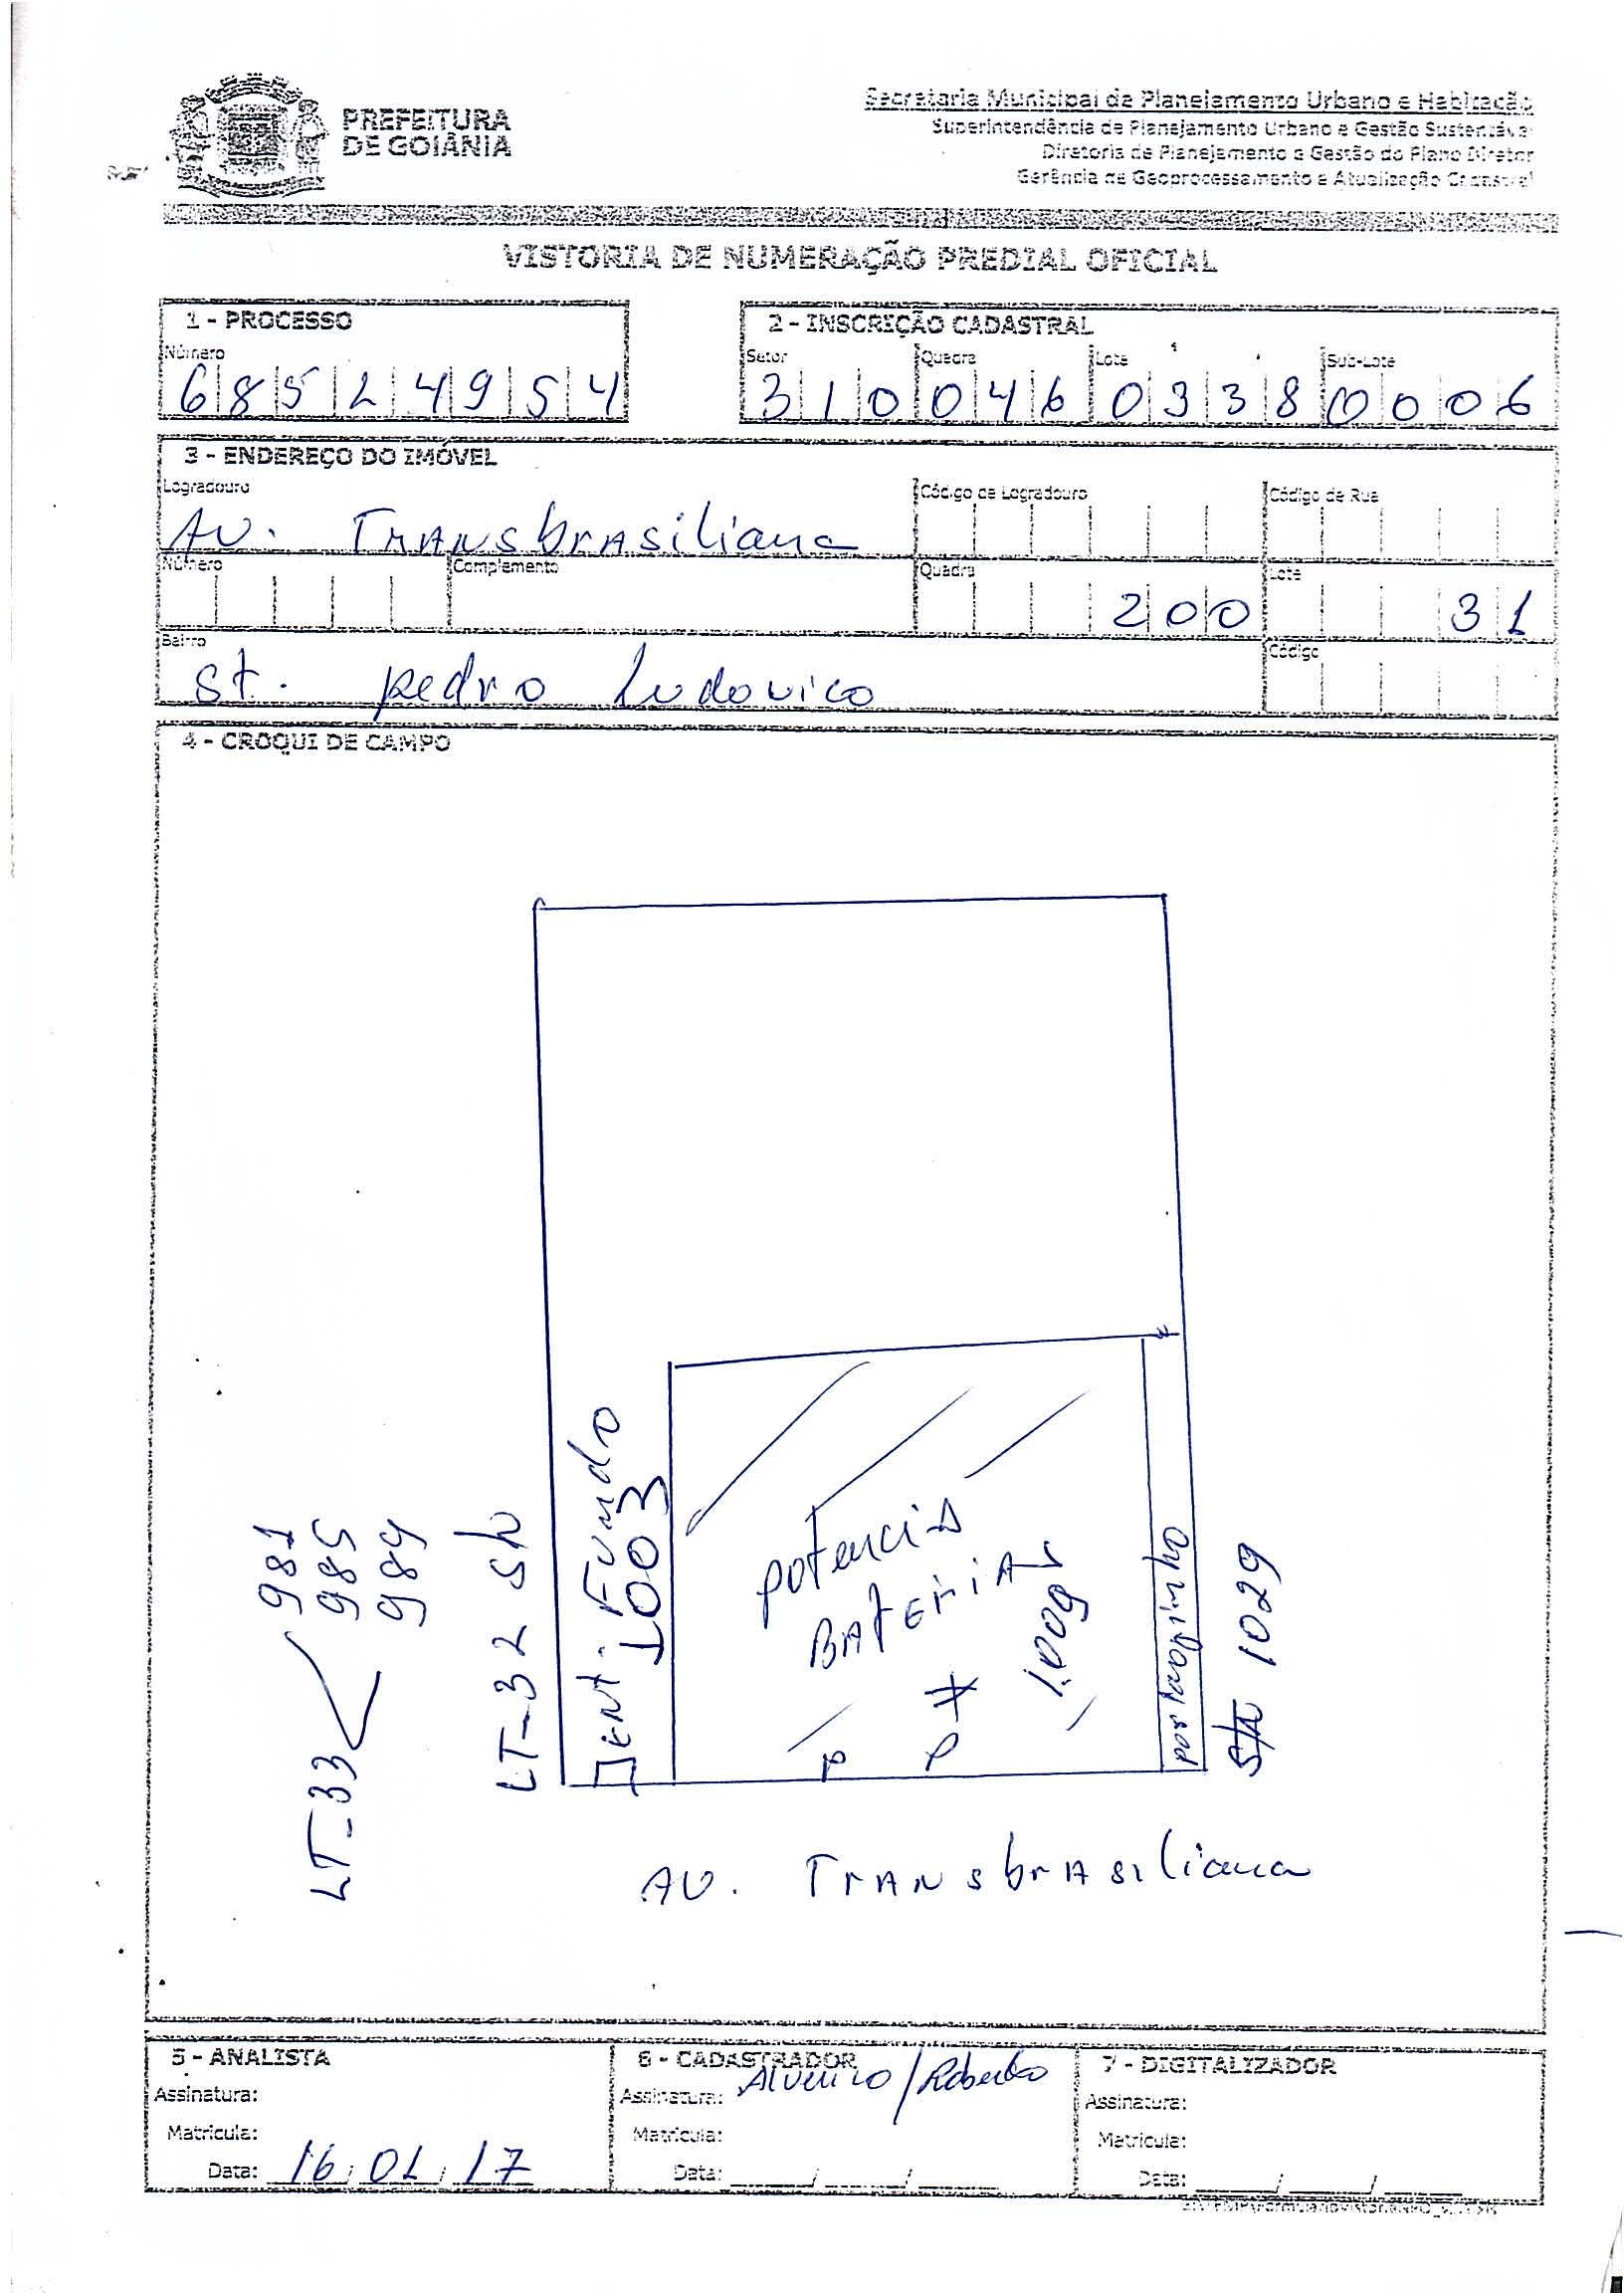 PREFEITURA
DE GOIÂNIA
Secretaria Municipal de Planejamento Urbano e Habitação
Superintendência de Planejamento Urbano e Gestão Sustentável
Diretoria de Planejamento e Gestão do Plano Diretor
Gerência de Geoprocessamento e Atualização Cadastral
VISTORIA DE NUMERAÇÃO PREDIAL OFICIAL
1 - PROCESSO
Número
68524954
2 - INSCRIÇÃO CADASTRAL
Setor Quadra Lote Sub-Lote
310 046 0338 0006
3 - ENDEREÇO DO IMÓVEL
Logradouro Código de Logradouro Código de Rua
AV. TRANSbrASiliana
Número Complemento Quadra Lote
200 31
Bairro Código
St. Pedro Ludovico
4 - CROQUI DE CAMPO
981
985
989
LT-33
LT-32 S/N
ENT. Fundo
1003
potenciA
BATEriA
1.009
S/N 1029
AV. TrANSbrASiliana
5 - ANALISTA
Assinatura:
Matrícula:
Data: 16/01/17
6 - CADASTRADOR
Assinatura: /Roberto
Matrícula:
Data: ____/____/____
7 - DIGITALIZADOR
Assinatura:
Matrícula:
Data: ____/____/____